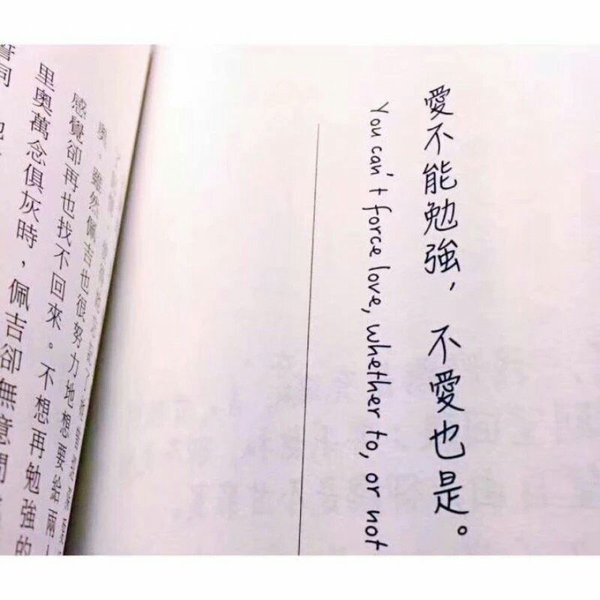 愛不能勉強，不愛也是。
You can't force love, whether to, or not
奧，雖然佩吉也很努力地想要給兩
感覺卻再也找不回來。不想再勉強的
里奧萬念俱灰時，佩吉卻無意間
誓詞